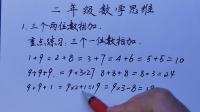 二年级数学思维
1.三个两位数相加.
重点练习:三个一位数相加.
1+9=2+8=3+7=4+6=5+5=10
9+9+9. =9×3=27 8+8+8=8×3=24
9+9+1=9×2+1=19=9×3-8=19